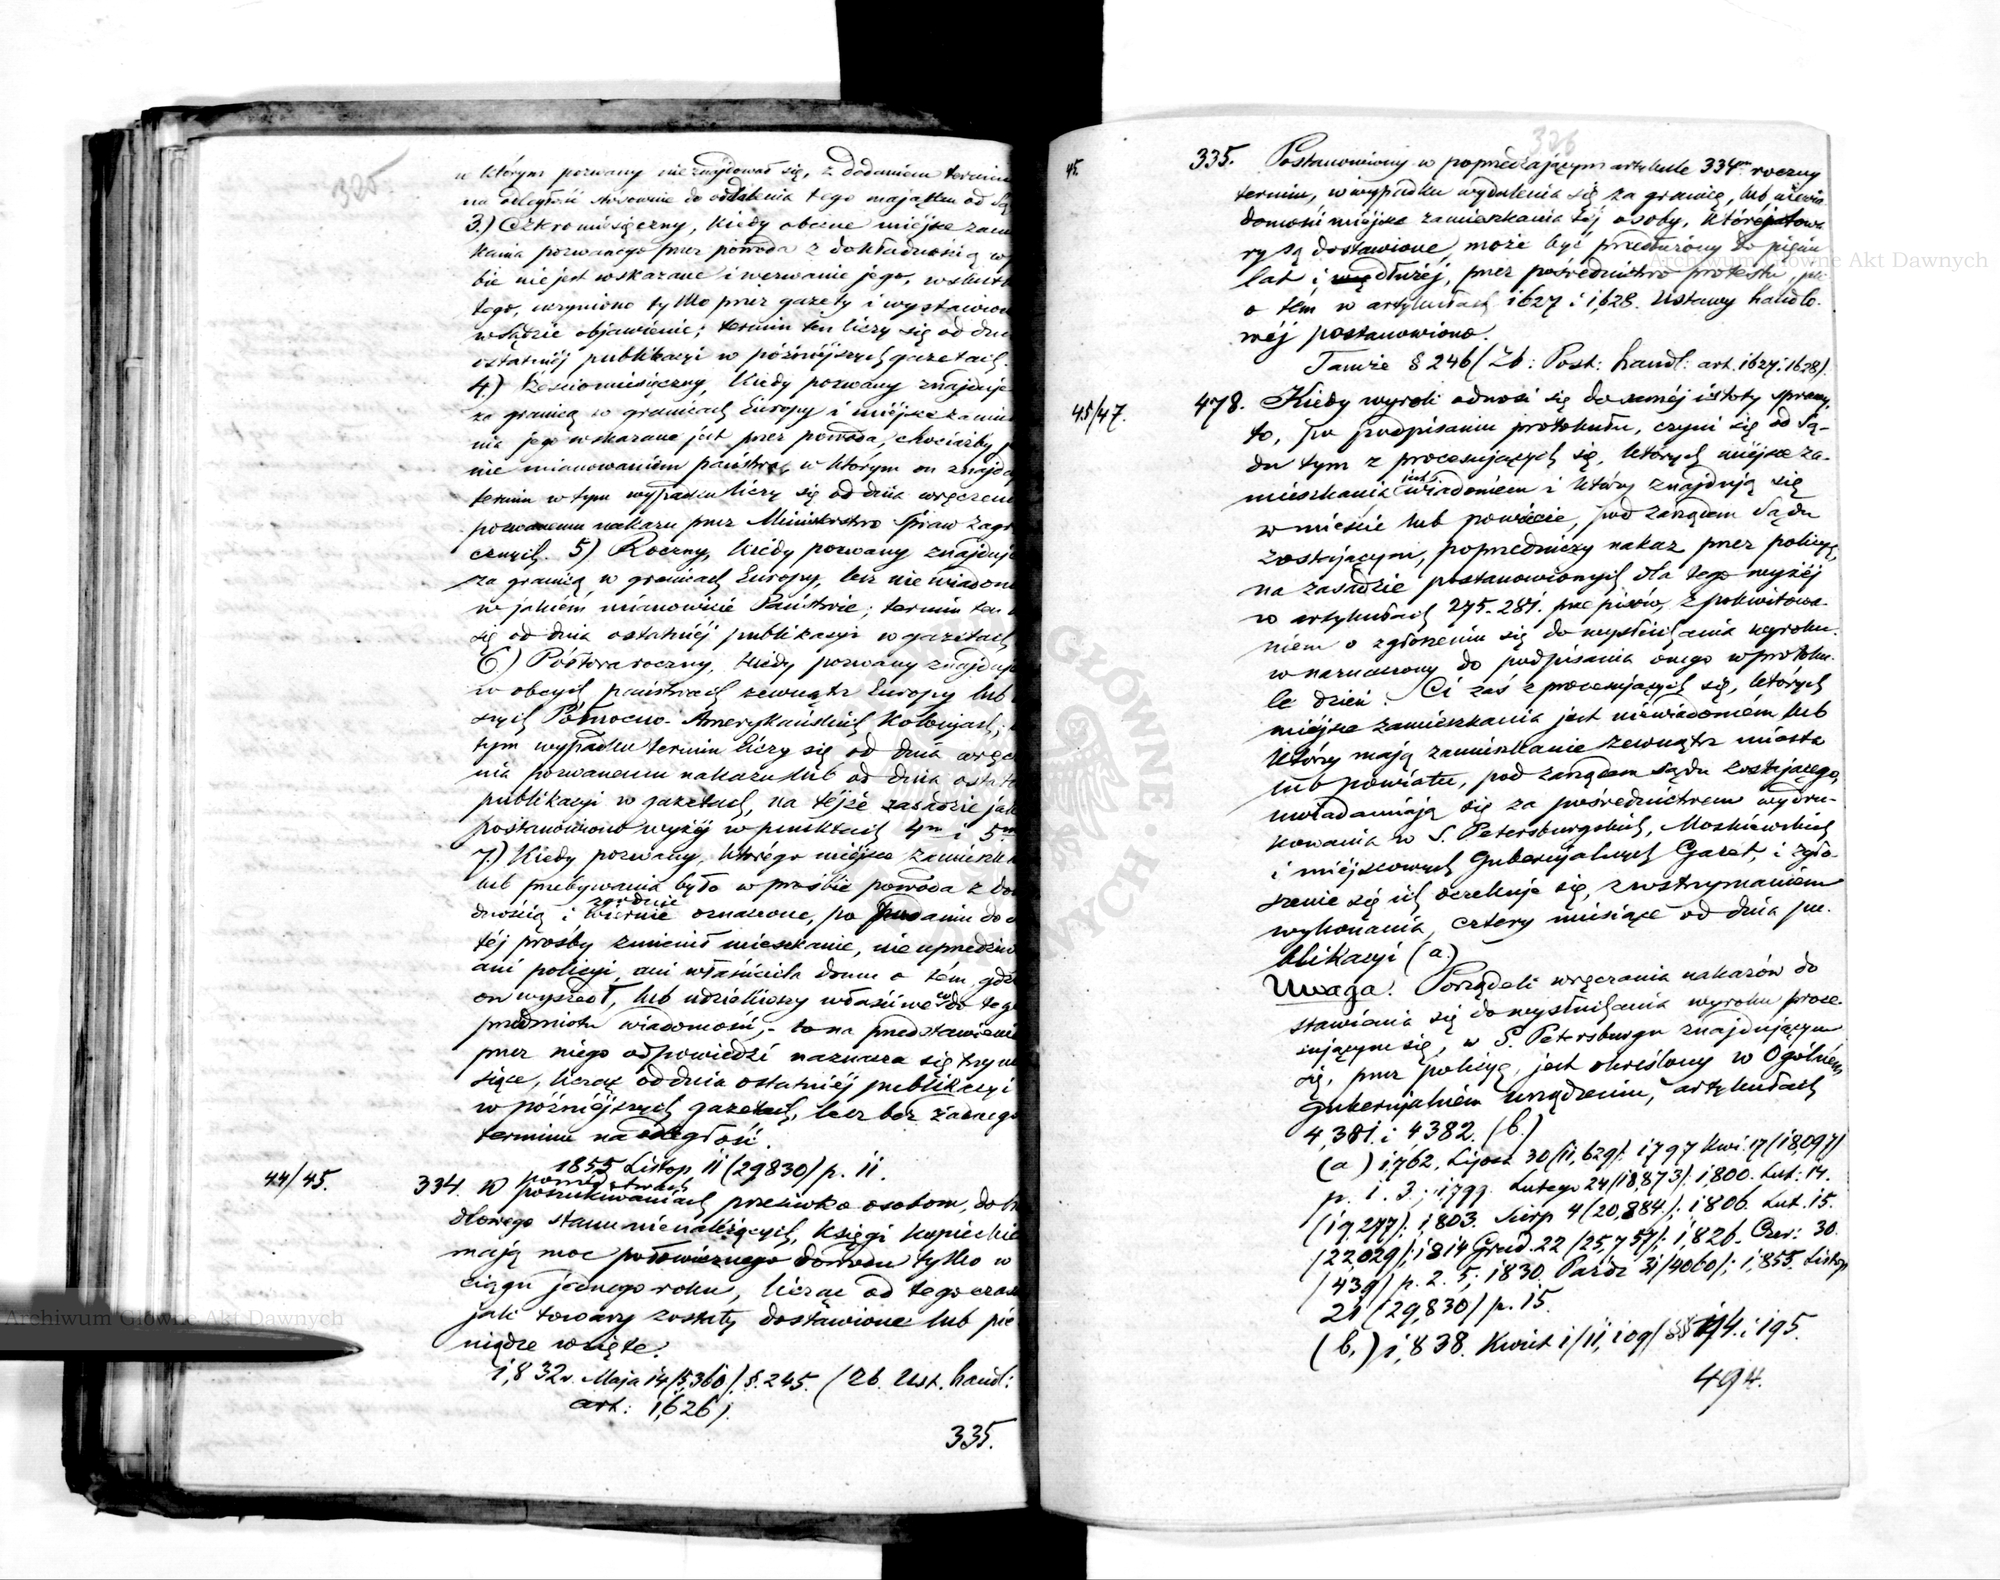 325
w którym pozwany nie znajdował się, z dodaniem termin
na odległość stósownie do oddalenia tego majątku od Są
3.) Cztromiesięczny, kiedy obecne miéjsce zam
kania pozwanego przez powoda z dokładnością w
bie nie jest wskazane i wezwanie jego, wskut
tego, uczyniono tylko przez gazety i wystawion
w Sądzie objawienie; termin ten liczy się od dni
ostatniéj publikacyi w póżniéjszych gazetach.
4.) Sześciomiesięczny, kiedy pozwany znajduje
za granicą w granicach Europy i miéjsce zamie
nia jego wskazane jest przez powoda, chociażby
nie mianowaniem państwa, w którym on znajdu
termin w tym wypadku liczy się od dnia wręczeni
pozwanemu nakazu przez Ministerstwo Spraw Zagr
cznych. 5) Roczny, kiedy pozwany znajduje
za granicą w granicach Europy, lecz nie wiadom
w jakiém mianowicie Państwie; termin ten
się od dnia ostatniéj publikacyi w gazetach
6.) Półtoraroczny, kiedy pozwany znajduje
w obcych państwach zewnątrz Europy lub
szych Północno-Amerykańskich Kolonijach;
tym wypadku termin liczy się od dnia wręcz
nia pozwanemu nakazu lub od dnia ostat
publikacyi w gazetach, na téjże zasadzie jak
postanowiono wyżéj w punktach 4m i 5m
7.) Kiedy pozwany, którego miéjsce zamieszk
lub przebywania było w prośbie powoda z do
zgodnie
dnością i wiernie oznaczone, po podaniu do
téj prośby zmienił mieszkanie, nie uprzedziw
ani policyi, ani właściciela domu o tém gdz
on wyszedł, lub udzieliwszy właściwe co do teg
przedmiotu wiadomości,- to na przedstawieni
przez niego odpowiedzi naznacza się trzy mi
siące, licząc od dnia ostatniéj publikacyi
w póżniéjszych gazetach, lecz bez żadnego
terminu na odległość.
1855 Listop. 11 (29830) p. 11.
44/45.
334. W poszukiwaniach przeciwko osobom, do h
dlowego stanu nienależących, księgi kupieckie
mają moc połowicznego dowodu tylko w
ciągu jednego roku, licząc od tego czasu
jak towary zostały dostawione lub pie
niądze wzięte.
1,832r. Maja 14 (5,360) §. 245. (Zb. Ust. handl:
art: 1,626).
335.
326
45.
335. Postanowiony w poprzedzającym artykule 334m roczny
termin, w wypadku wydalenia się za granicę, lub niewia
domości miéjsca zamieszkania téj osoby, któréj towa
ry są dostawione, może być przedłużony do pięciu
lat i dłużéj, przez pośrednictwo protestu, jak
o tém w artykułach 1627 i 1,628. Ustawy handlo-
wéj postanowiono.
Tamże § 246 (Zb: Post: handl: art. 1627. 1628).
45/47.
478. Kiedy wyrok odnosi się do saméj istoty sprawy,
to, po podpisaniu protokułu, czyni się od Są-
du tym z processujących się, których miéjsce za-
mieszkania jest wiadomém i którzy znajdują się
w mieście lub powiecie, pod zarządem Sądu
zostającym, poprzedniczy nakaz przez policyę,
na zasadzie postanowionych dla tego wyżéj
w artykułach 275-281. przepisów, z pokwitowa-
niem o zgłoszeniu się do wysłuchania wyroku.
w naznaczony do podpisania onego w protoku-
le dzień. Ci zaś z processujących się, których
miéjsce zamieszkania jest niewiadomém lub
którzy mają zamieszkanie zewnątrz miasta
lub powiatu, pod zarządem Sądu zostającego,
uwiadamiają się za pośrednictwem wydru-
kowania w S. Petersburgskich, Moskiewskich
i miéjscowych Gubernijalnych Gazet, i zgło-
szenie się ich oczekuje się, z wstrzymaniem
wykonania, cztery miesiące od dnia pu-
blikacyi (a.)
Uwaga. Porządek wręczania nakazów do
stawiania się do wysłuchania wyroku proce-
sującym się, w S. Petersburgu znajdującym
się, przez policyę, jest określony w Ogólném
Gubernijalném urządzeniu, artykułach
4,381. i 4382. (b.)
(a.) 1,762. Lipca 30 (11,629). 1797 Kwi. 17 (18,097)
p. 1. 3.; 1799. Lutego 24 (18,873). 1,800. Lut. 14.
(19,277); 1,803. Sierp 4 (20,884.); 1806. Lut. 15.
(22,029); 1814 Grud. 22 (25,757); 1,826. Czer: 30.
(439) p. 2. 5; 1830. Paźdz 31 (4060); 1,855. Listop
21 (29,830) p. 15.
(b.) 1,838. Kwiet 1 (11,109) §§ 194. i 195.
494.